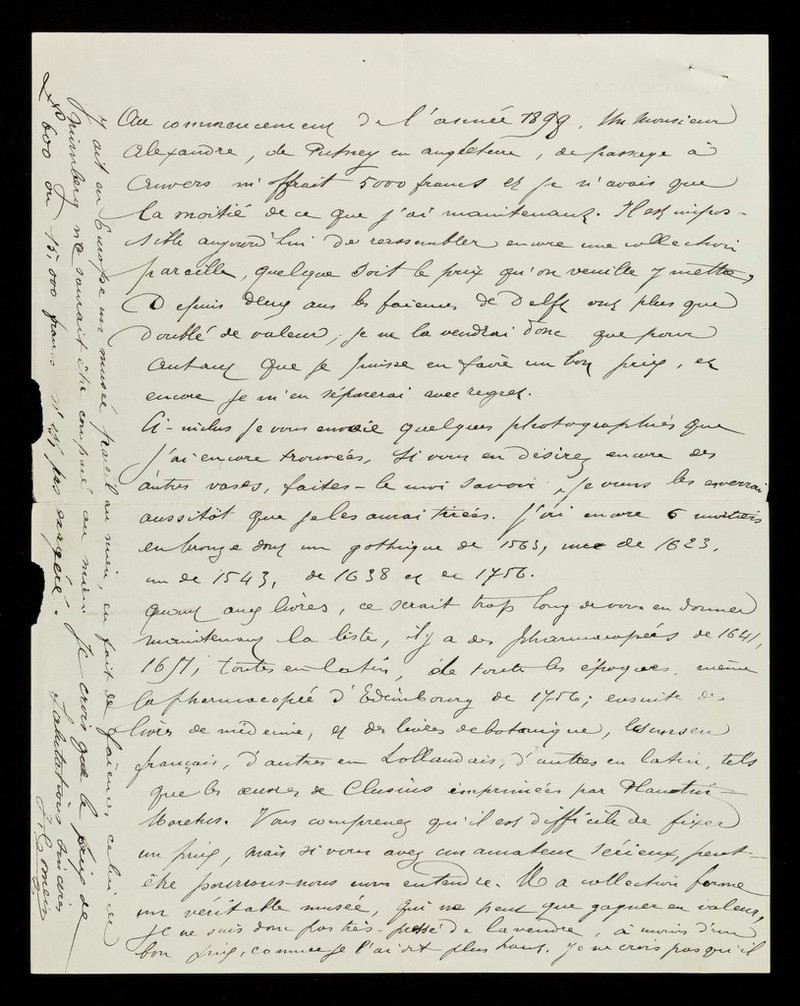 Au commencement de l'année 1899, Un Monsieur
Alexandre, de Putney en angleterre, de passage à
Anvers m'offrait 5000 francs et je n'avais que
la moitié de ce que j'ai maintenant. Il est impos-
sible aujourd'hui de reassembler encore une collection
pareille, quelque soit le prix qu'on veuille y mettre,
Depuis deux ans les faiences de Delft ont plus que
doublé de valeur; je ne la vendrai donc que pour
autant que je puisse en faire un bon prix, et
encore je m'en séparerai avec regret.
Ci-inclus je vous envoie quelques photographies que
j'ai encore trouvées, si vous en désirez encore des
autres vases, faites-le moi savoir, je vous les enverrai
aussitôt que je les aurai tirées. J'ai encore 5 mortiers
en bronze dont un gothique de 1563, un de 1623,
un de 1543, de 1638 et de 1756.
quant aux livres, ce serait trop long de vous en donner
maintenant la liste, il y a des pharmacopées de 1641,
1651, toutes en latin, de toute les époques, même
la pharmacopée d'Edimbourg de 1756; ensuite des
livres de médecine, et des livres de botanique, les uns en
français, d'autres en hollandais, d'autres en latin, tels
que les œuvres de Clusius imprimées par Plantin-
Moretus. Vous comprenez qu'il est difficile de fixer
un prix, mais si vous avez un amateur sérieux, peut-
être pourrons-nous nous entendre. Ma collection forme
un véritable musée, qui ne peut que gagner en valeur,
je ne suis donc pas très-pressé de la vendre, à moins d'un
bon prix, comme je l'ai dit plus haut. Je ne crois pas qu'il
y ait en Europe un musée pareil au mien, en fait de faïences, celui de
Nuremberg ne saurait être comparé au mien. Je crois que le prix de
£ 600 ou 15,000 francs n'est pas exagéré.
Salutations sincères